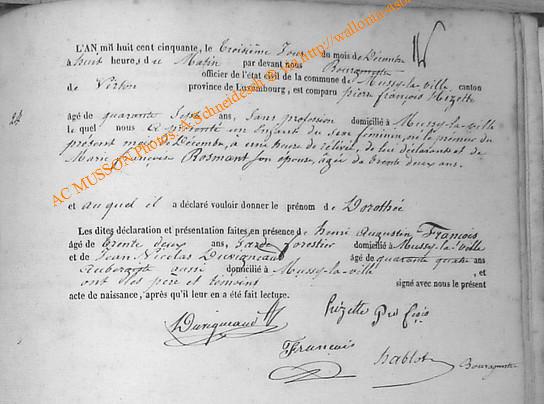 L'AN mil huit cent cinquante, le troisième Jour du mois de Décembre
à huit heures, d u Matin par devant nous Bourgmestre
officier de l'état civil de la commune de Mussy-la-ville, canton
de Virton province de Luxembourg, est comparu pierre françois Hizette
24
âgé de quarante sept ans, Sans profession domicilié à Mussy-la-ville
le quel nous a présenté un Enfant du sexe féminin, né le premier du
présent mois de Décembre, à une heure de relevée, de lui déclarant et de
Marie Rosmant son épouse, âgée de trente deux ans.
et auquel il a déclaré vouloir donner le prénom de Dorothée
Les dites déclaration et présentation faites, en présence de henri Augustin François
âgé de trente deux ans, Garde forestier domicilié à Mussy-la-Ville
et de Jean Nicolas Duvigneaud âgé de quarante quatre ans
Aubergiste aussi domicilié à Mussy-la-ville, et
ont les père et témoins signé avec nous le présent
acte de naissance, après qu'il leur en a été fait lecture.
Duvigneaud
François
hablot Bourgmestre
AC MUSSON Photos: A. Schneiders http://wallonia-asbl